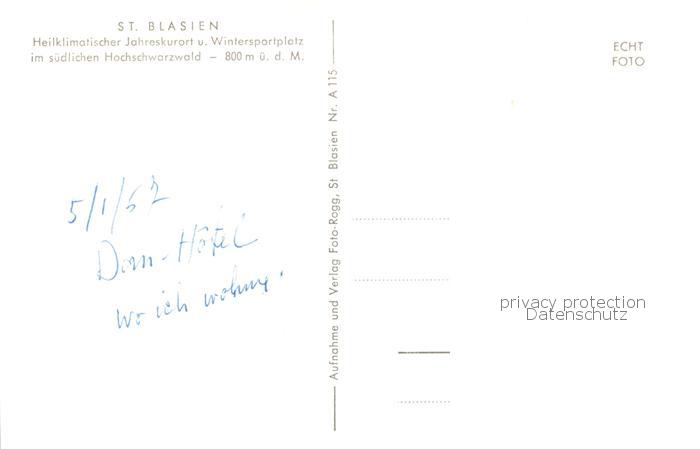 ST. BLASIEN
Heilklimatischer Jahreskurort u. Wintersportplatz
im südlichen Hochschwarzwald – 800 m ü. d. M.
ECHT
FOTO
5/1/62
Dom-Hotel
wo ich wohne.
Aufnahme und Verlag Foto-Rogg, St Blasien Nr. A 115
privacy protection
Datenschutz